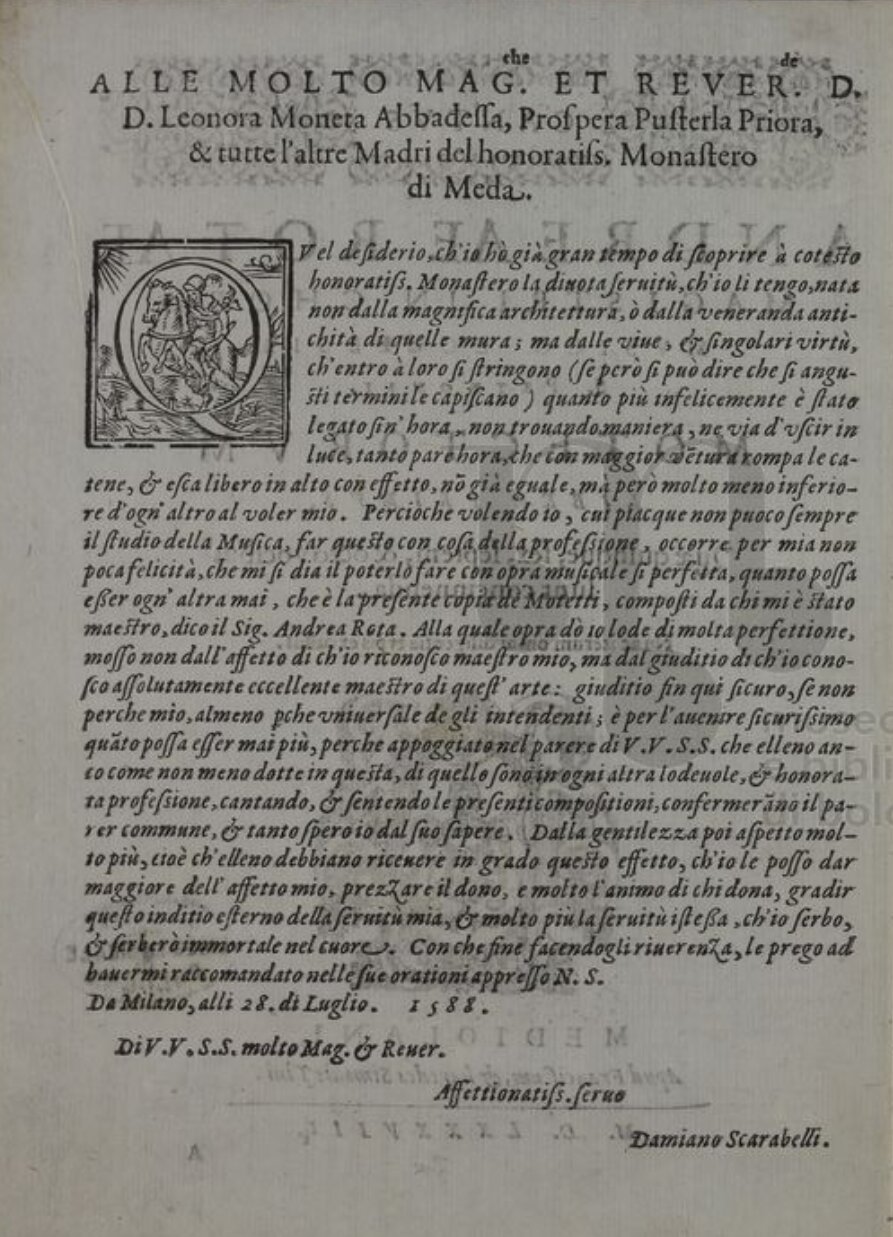 ALLE MOLTO MAG.che ET REVER.de D.
D. Leonora Moneta Abbadeſſa, Proſpera Puſterla Priora,
& tutte l'altre Madri del honoratiſs. Monaſtero
di Meda.
QVel deſiderio, ch'io hò già gran tempo di ſcoprire à coteſto
honoratiſs. Monaſtero la diuota ſeruitù, ch'io li tengo, nata
non dalla magnifica architettura, ò dalla veneranda anti-
chità di quelle mura; ma dalle viue, & ſingolari virtù,
ch'entro à loro ſi ſtringono (ſe però ſi può dire che ſi angu-
ſti termini le capiſcano) quanto più infelicemente è ſtato
legato ſin' hora, non trouando maniera, ne via d'vſcir in
luce, tanto pare hora, che con maggior vẽtura rompa le ca-
tene, & eſca libero in alto con effetto, nõ già eguale, mà però molto meno inferio-
re d'ogn' altro al voler mio. Perciòche volendo io, cui piacque non puoco ſempre
il ſtudio della Muſica, far queſto con coſa della profeſsione, occorre per mia non
poca felicità, che mi ſi dia il poterlo fare con opra muſicale ſi perfetta, quanto poſſa
eſſer ogn' altra mai, che è la preſente copia de Motetti, compoſti da chi mi è ſtato
maeſtro, dico il Sig. Andrea Rota. Alla quale opra dò io lode di molta perfettione,
moſſo non dall'affetto di ch'io riconoſco maeſtro mio, ma dal giuditio di ch'io cono-
ſco aſſolutamente eccellente maeſtro di queſt' arte: giuditio ſin qui ſicuro, ſe non
perche mio, almeno pche vniuerſale de gli intendenti; è per l'auenire ſicuriſsimo
quãto poſſa eſſer mai più, perche appoggiato nel parere di V.V.S.S. che elleno an-
co come non meno dotte in queſta, di quello ſono in ogni altra lodeuole, & honora-
ta profeſsione, cantando, & ſentendo le preſenti compoſitioni, confermerãno il pa-
rer commune, & tanto ſpero io dal ſuo ſapere. Dalla gentilezza poi aſpetto mol-
to più, cioè ch'elleno debbiano riceuere in grado queſto effetto, ch'io le poſſo dar
maggiore dell'affetto mio, prezzare il dono, e molto l'animo di chi dona, gradir
queſto inditio eſterno della ſeruitù mia, & molto più la ſeruitù iſteſſa, ch'io ſerbo,
& ſerberò immortale nel cuore. Con che fine facendogli riuerenza, le prego ad
hauermi raccomandato nelle ſue orationi appreſſo N. S.
Da Milano, alli 28. di Luglio. 1588.
Di V.V.S.S. molto Mag. & Reuer.
Affettionatiſs. ſeruo
Damiano Scarabelli.